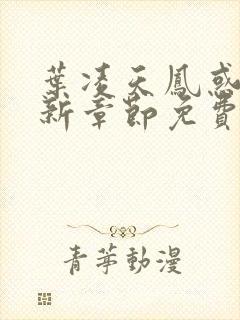 葉凌天鳳惑
新章節免費
青苹動漫